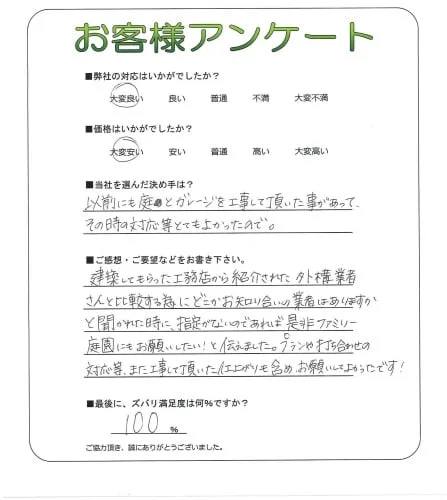 お客様アンケート
■弊社の対応はいかがでしたか？
大変良い 良い 普通 不満 大変不満
■価格はいかがでしたか？
大変安い 安い 普通 高い 大変高い
■当社を選んだ決め手は？
以前にも庭とガレージを工事して頂いた事があって、
その時の対応等とてもよかったので。
■ご感想・ご要望などをお書き下さい。
建築してもらった工務店から紹介された外構業者
さんと比較する為にどこかお知り合いの業者はありますか
と聞かれた時に、指定がないのであれば是非ファミリー
庭園にもお願いしたい！と伝えました。プランや打ち合わせの
対応等、また工事して頂いた仕上がりも含め、お願いしてよかったです！
■最後に、ズバリ満足度は何%ですか？
100 %
ご協力頂き、誠にありがとうございました。